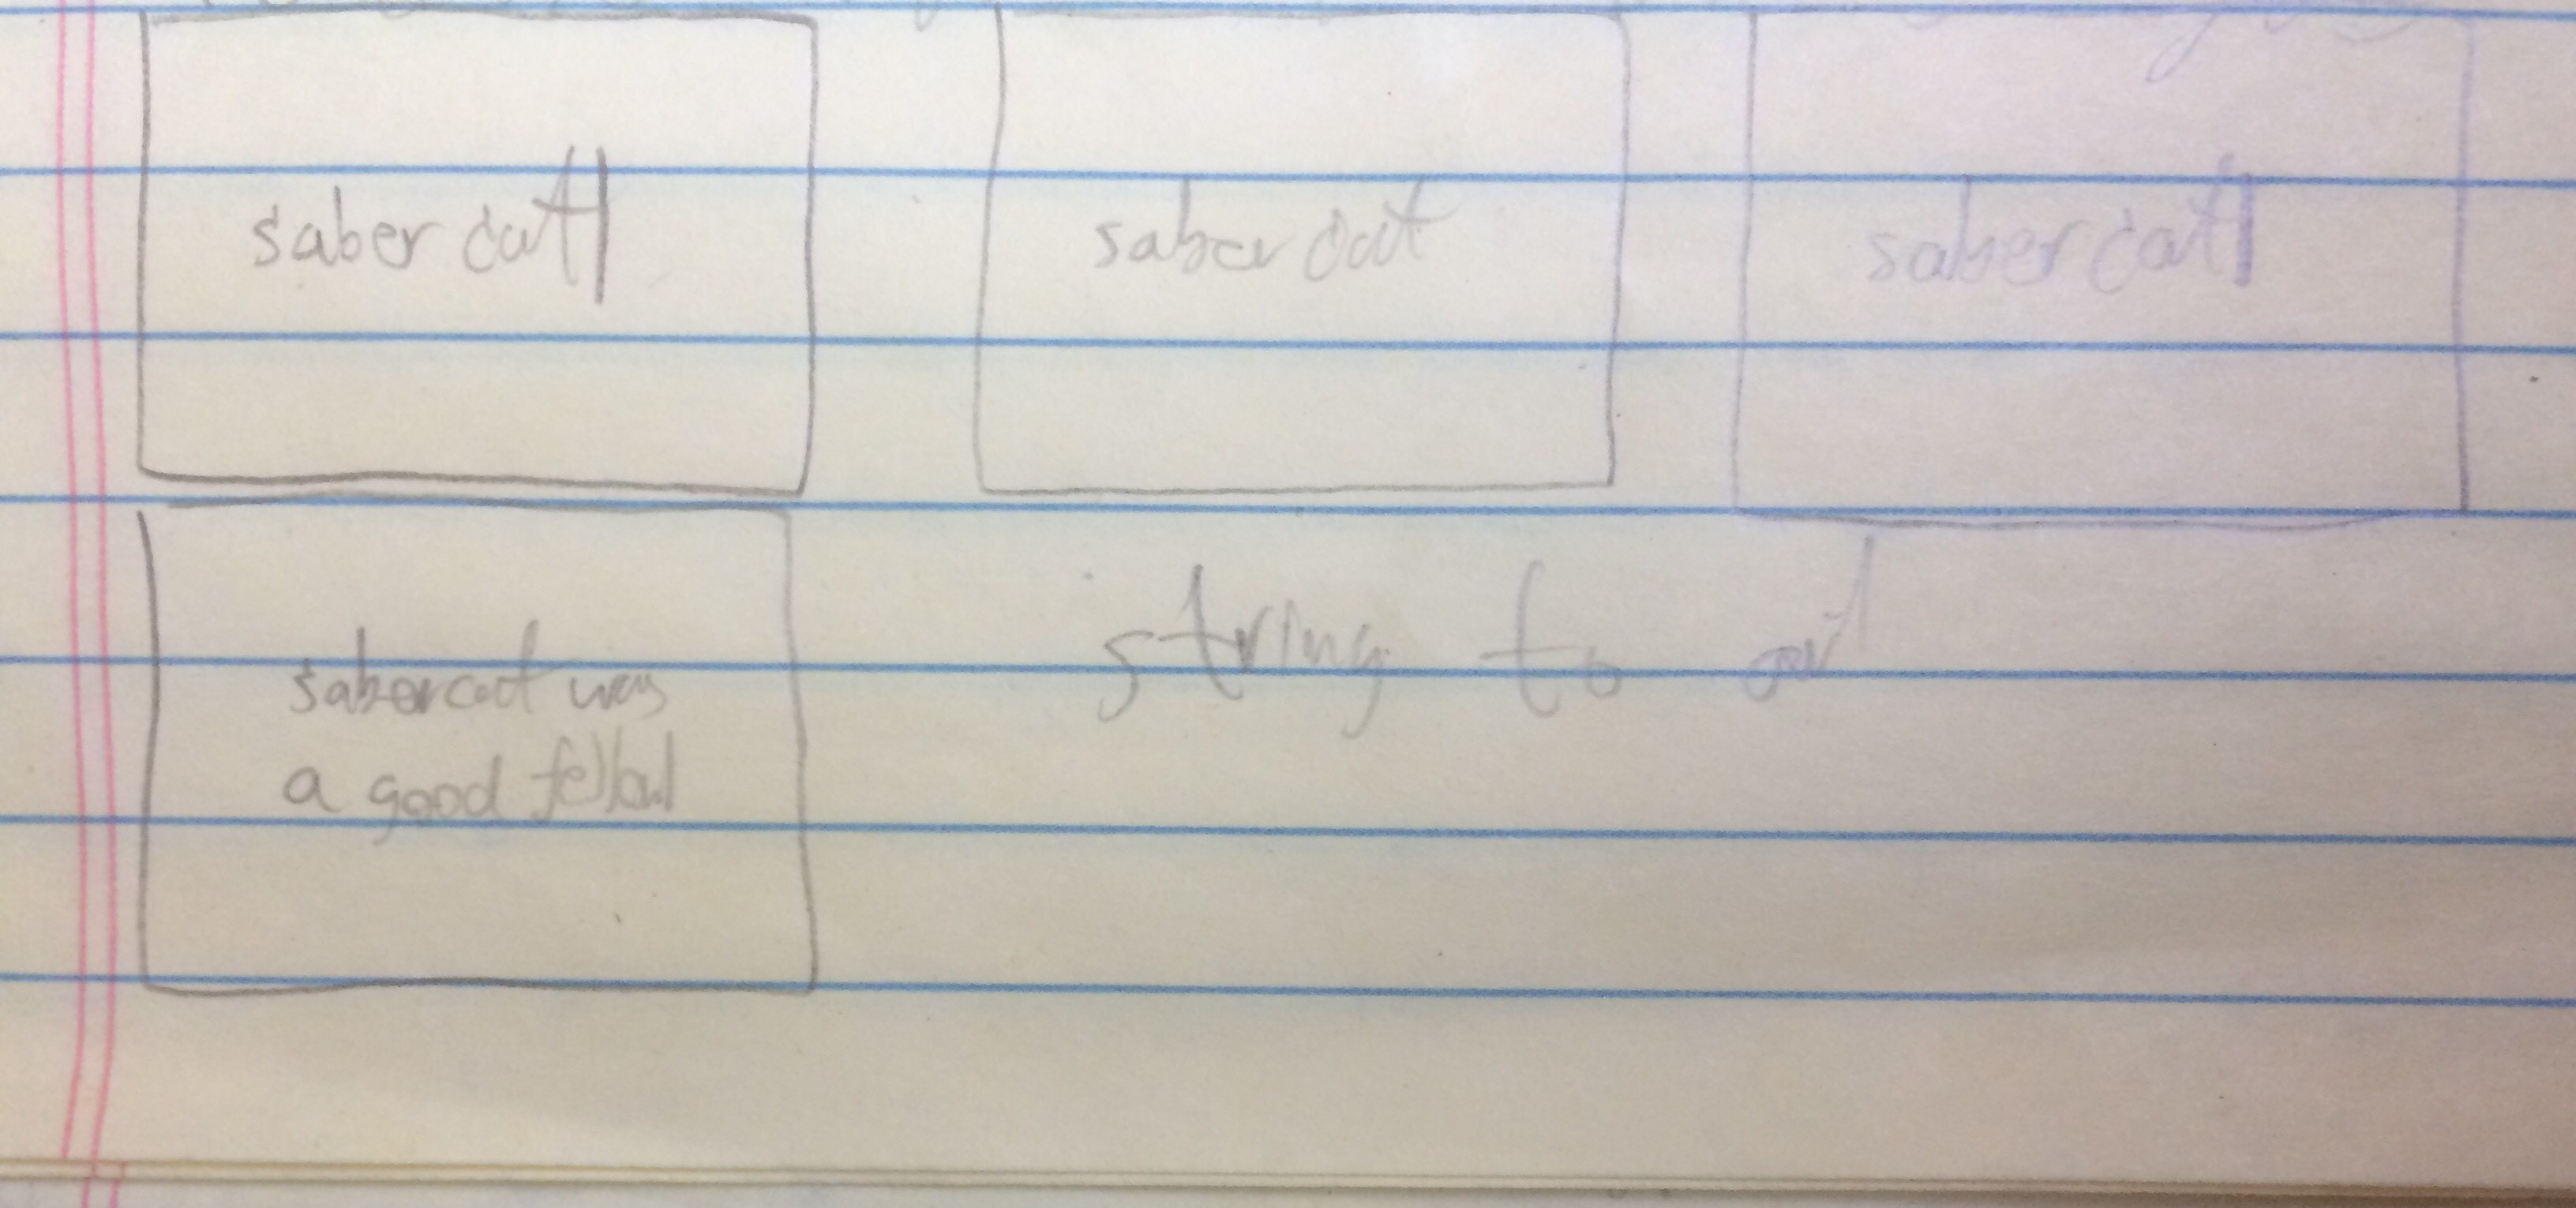 saber cat|
saber cat
saber cat|
saber cat was
a good fellow|
string to